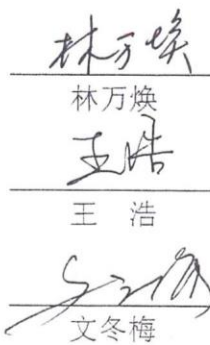 林万焕
林万焕
王浩
王 浩
文冬梅
文冬梅